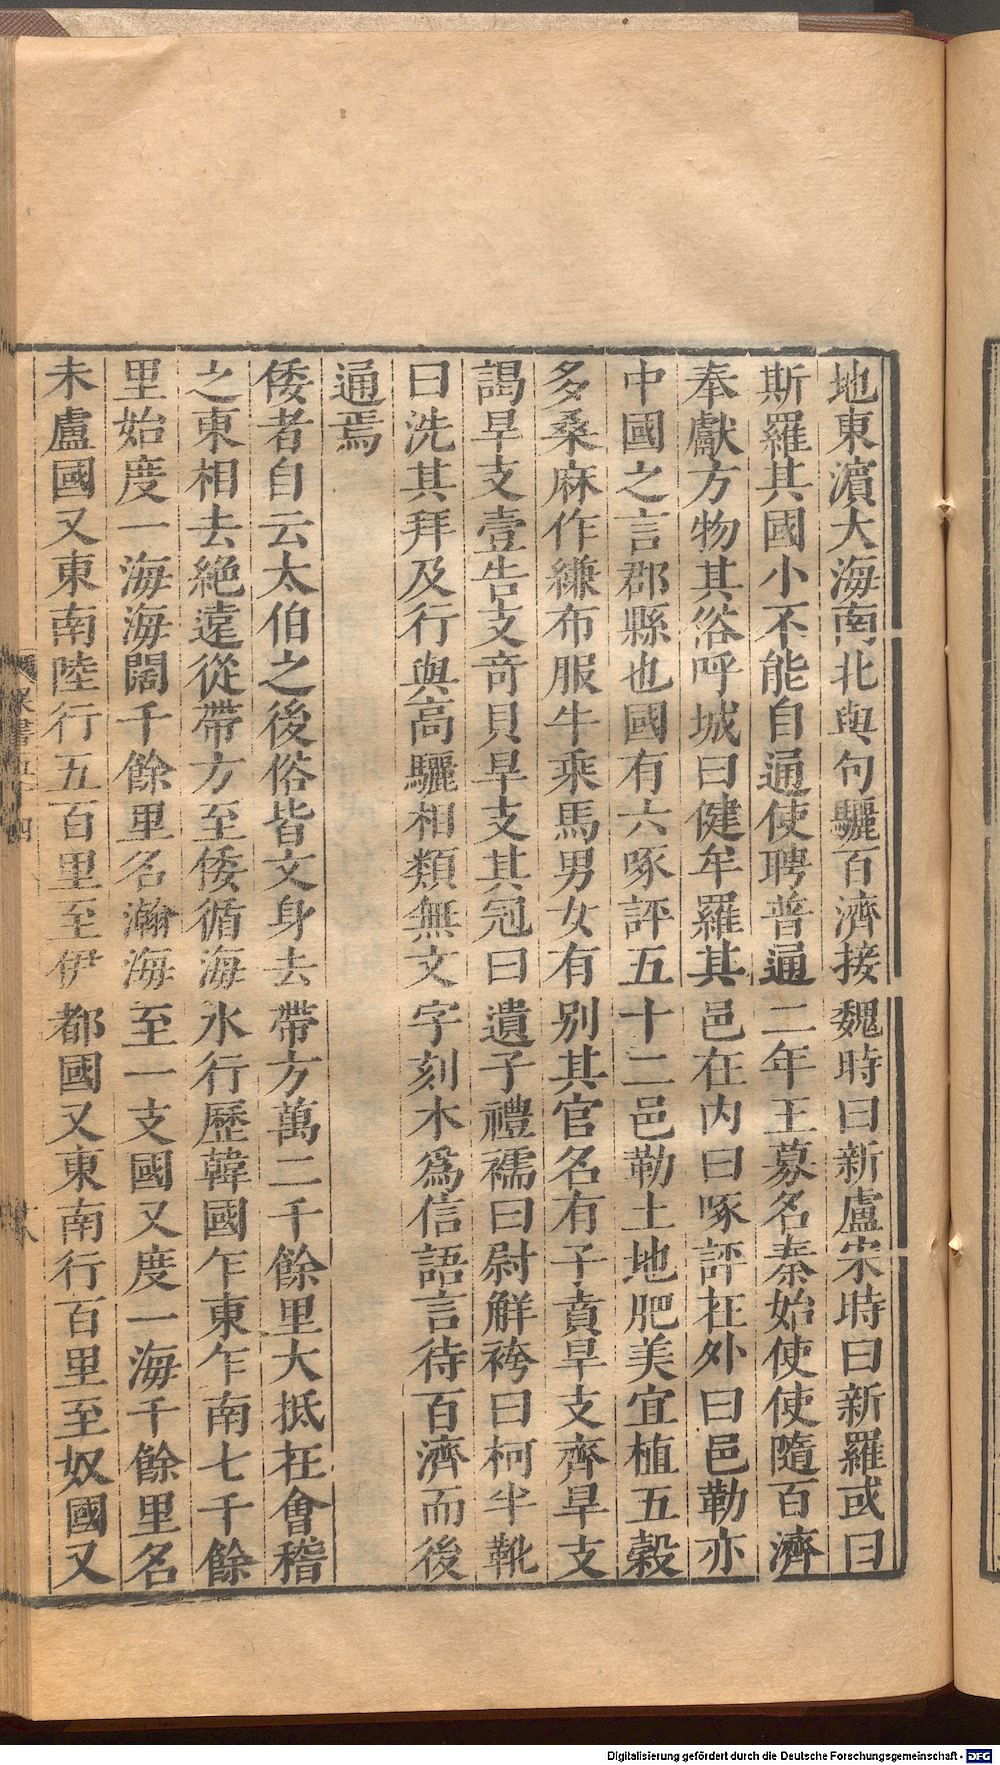 地東濵大海南北與句驪百濟接魏時曰新盧宋時曰新羅或曰
斯羅其國小不能自通使聘普通二年王募名秦始使使隨百濟
奉獻方物其俗呼城曰健牟羅其邑在內曰啄評在外曰邑勒亦
中國之言郡縣也國有六啄評五十二邑勒土地肥美宜植五穀
多桑麻作縑布服牛乘馬男女有别其官名有子賁旱支齊旱支
謁旱支壹告支竒貝旱支其冠曰遺子禮襦曰尉解袴曰柯半靴
曰洗其拜及行與高驪相類無文字刻木爲信語言待百濟而後
通焉
倭者自云太伯之後俗皆文身去帶方萬二千餘里大抵在會稽
之東相去絶遠從帶方至倭循海水行歷韓國乍東乍南七千餘
里始度一海海闊千餘里名瀚海至一支國又度一海千餘里名
未盧國又東南陸行五百里至伊都國又東南行百里至奴國又
Digitalisierung gefördert durch die Deutsche Forschungsgemeinschaft - DFG